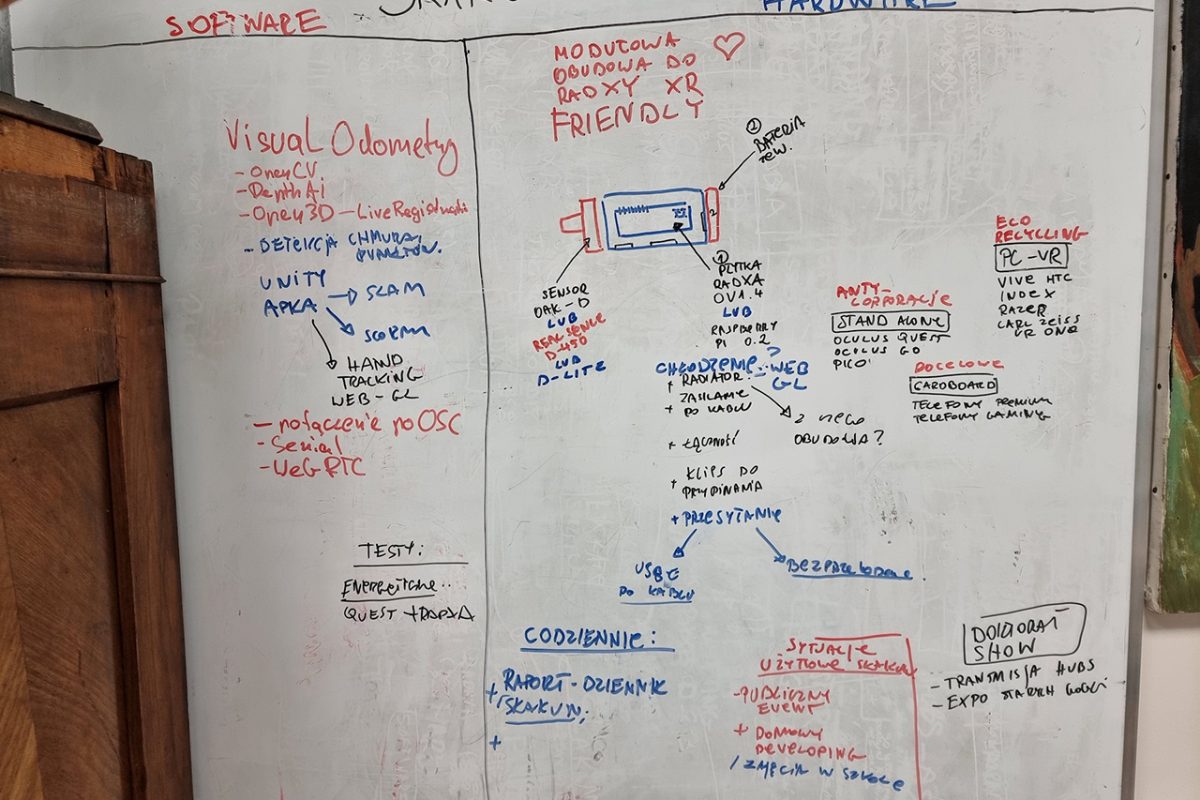 SOFTWARE
HARDWARE
Visual Odometry
- OpenCV.
- DepthAi
- Open3D - Live
- DETEKCJA CHMURY
PUNKTÓW.
UNITY
APKA
SLAM
SCORM
HAND
TRACKING
WEB-GL
- połączenie po OSC
- Serial
- WeGRTC
TESTY:
ENERGETYCZNE..
QUEST + RADXA
MODUŁOWA
OBUDOWA DO
RADXY XR
FRIENDLY
② BATERIA
ZEW.
2
SENSOR
OAK-D
LUB
REALSENCE
D-450
LUB
D-LITE
①
PŁYTKA
RADXA
OV1.4
LUB
RASPBERRY
PI 0.2
CHŁODZENIE
? WEB
GL
+ RADIATOR.
+ ZASILANIE
+ PO KABLU
Z NIEGO
OBUDOWA?
+ ŁĄCZNOŚĆ
+ KLIPS DO
PRZYPINANIA
+ PRZESYŁANIE
USB C
PO KABLU
BEZPRZEWODOWE
ANTY-
CORPORACJE
STAND ALONE
OCULUS QUEST
OCULUS GO
PICO
ECO
RECYCLING
PC-VR
VIVE HTC
INDEX
RAZER
CARL ZEISS
VR ONE
DOCELOWE
CARDBOARD
TELEFONY PREMIUM
TELEFONY GAMING
CODZIENNIE:
+ RAPORT-DZIENNIK
SKAKUN;
+
SYTUACJE
UŻYTKOWE SKAKUN
- PUBLICZNY
EVENT
+ DOMOWY
DEVELOPING
/ ZAJĘCIA W SZKOLE
DOKTORAT
SHOW
- TRANSMISJA HUBS
- EXPO STARYCH